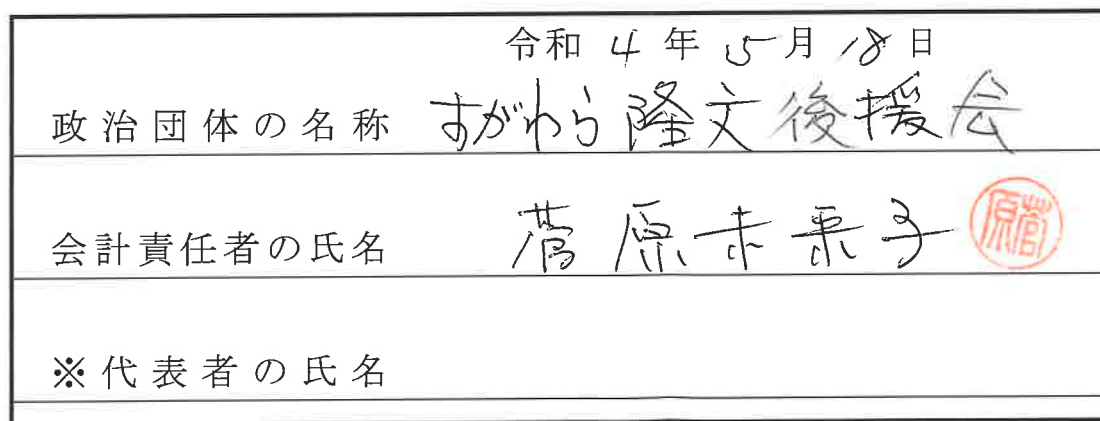 令和 4 年 5 月 18 日
政治団体の名称 すがわら隆文後援会
会計責任者の氏名 菅原未来子 菅原
※代表者の氏名